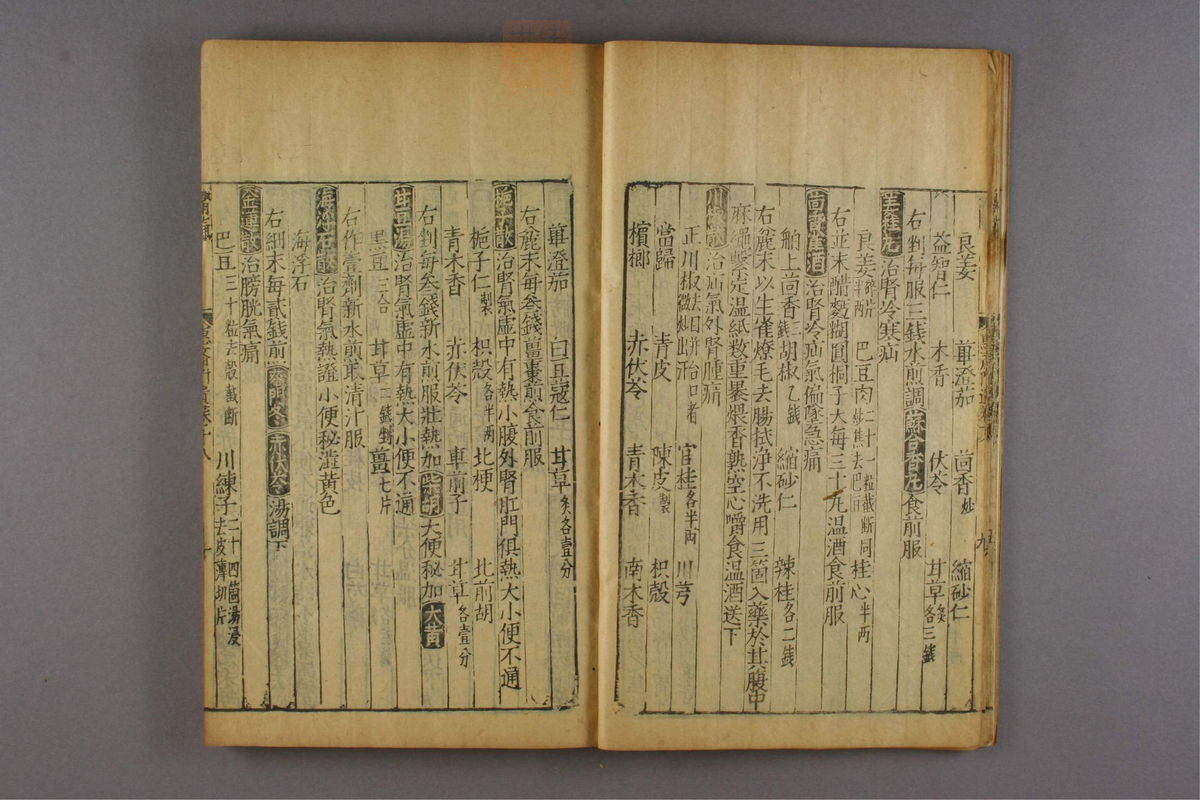 良姜 蓽澄茄 茴香炒 縮砂仁
益智仁 木香 伏苓 甘草炙各三錢
右剉每服三錢水煎調蘇合香元食前服
姜桂元治腎冷寒疝
良姜碎片半兩 巴豆肉二十一粒截断同炒焦去巴豆 桂心半两
右並末醋麪糊圓桐子大每三十元温酒食前服
茴香雀酒治腎冷疝氣偏墜急痛
舶上茴香三錢 胡椒乙錢 縮砂仁 辣桂各二錢
右麄末以生雀燎毛去腸拭净不洗用三箇入藥於其腹中
麻繩繫定温紙数重裹煨香熟空心嚼食温酒送下
川椒散治疝氣外腎腫痛
正川椒 微炒出汗 官桂各半两 川芎
當歸 青皮 陳皮製 枳殼
檳榔 赤伏苓 青木香 南木香
蓽澄茄 白豆蔻仁 甘草炙各壹分
右麄末每叁錢薑棗煎食前服
梔子散治腎氣虚中有熱小腹外腎肛門俱熱大小便不通
梔子仁製 枳殼各半两 北梗 北前胡
青木香 赤伏苓 車前子 甘草各壹分
右剉每叁錢新水煎服壯熱加柴胡大便秘加大黄
甘豆湯治腎氣虚中有熱大小便不通
黑豆三合 甘草二錢剉 薑七片
右作壹劑新水煎取清汁服
海浮石散治腎氣熱證小便秘澁黄色
海浮石
右細末每貳錢煎麥門冬赤伏苓湯調下
金蓮散治膀胱氣痛
巴豆三十粒去殼截断 川練子二十四箇湯浸去皮薄切片